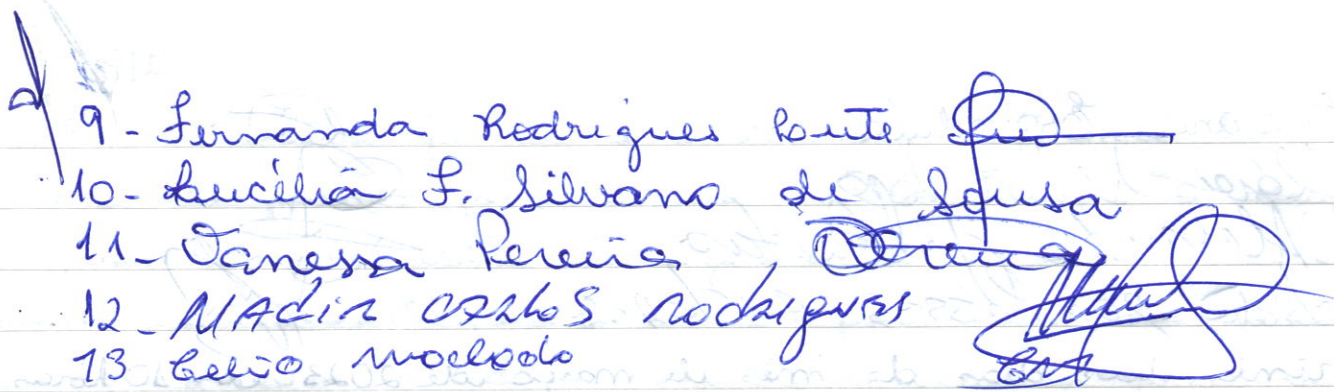 9- Fernanda Rodrigues
10- Lucélia F. Silvano de Sousa
11- Vanessa Pereira
12- NAdir CARLOS Rodrigues
13 Celio Machado